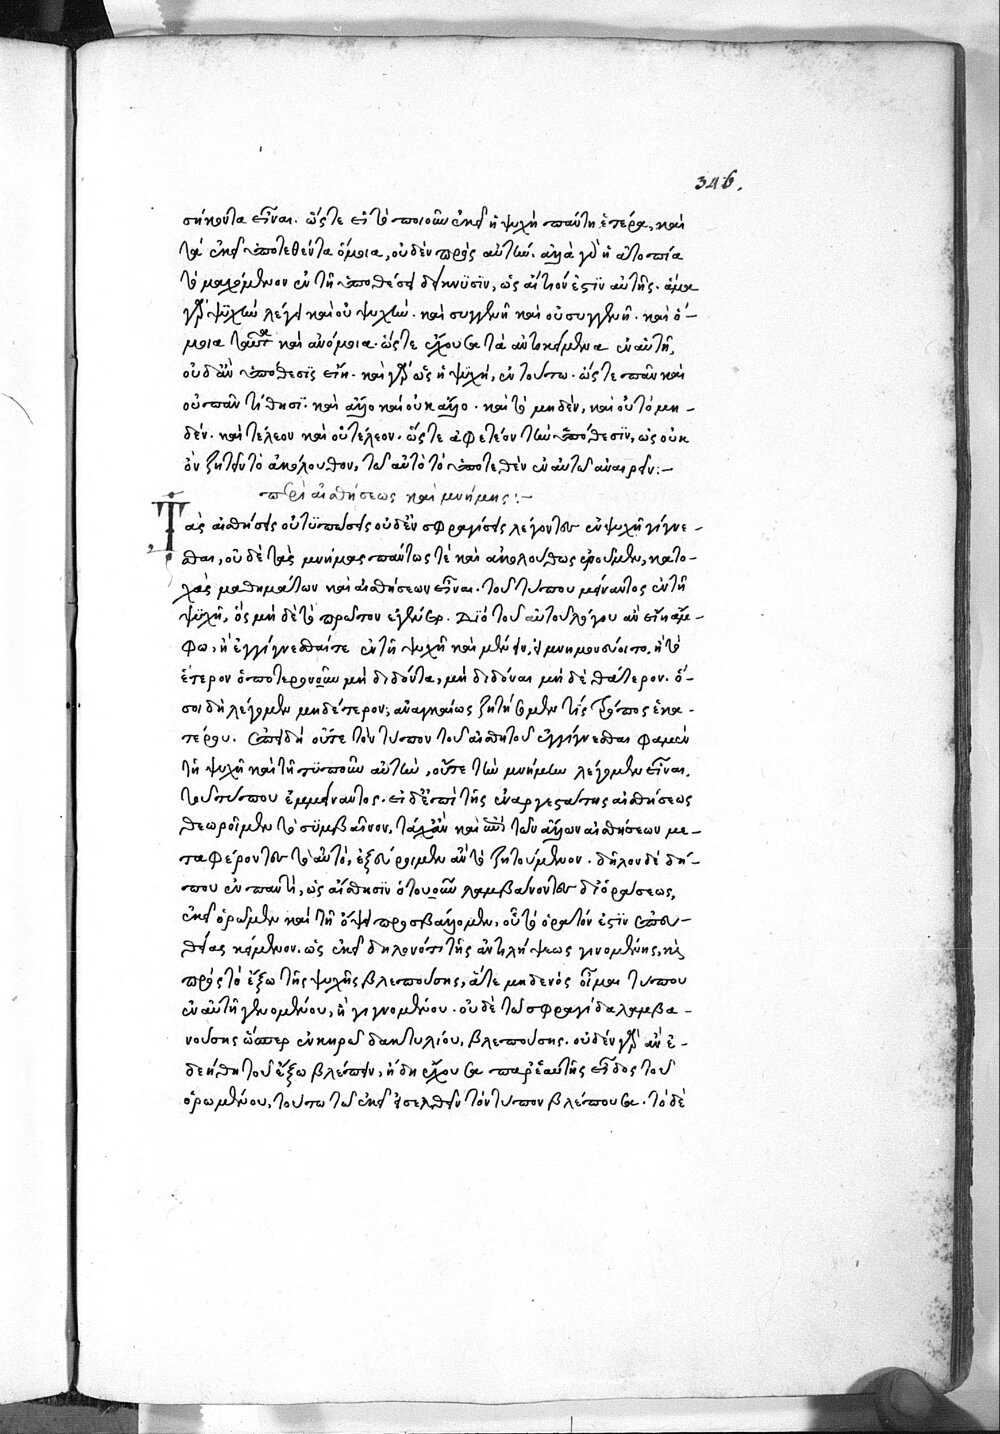 346.
σήκοντα εἶναι. ὥστε εἰ τὸ ποιοῦν ἐκεῖ ἡ ψυχὴ πάντη ἑτέρα, καὶ
τὰ ἐκεῖ ὑποτεθέντα ὅμοια, οὐδὲν πρὸς αὐτήν. ἀλλὰ γὰρ ἡ ἀτοπία
τὸ μαχόμενον ἐν τῇ ὑποθέσει δείκνυσιν, ὡς αἴτιόν ἐστιν αὐτῆς. ἅμα
γὰρ ψυχὴν λέγει καὶ οὐ ψυχήν. καὶ συγγενῆ καὶ οὐ συγγενῆ. καὶ ὅ-
μοια ταῦτα καὶ ἀνόμοια. ὥστε ἔχουσα τὰ ἀντικείμενα ἐν αὑτῇ,
οὐδ' ἂν ὑπόθεσις εἴη. καὶ γὰρ ὡς ἡ ψυχή, ἐν τούτω. ὥστε πᾶν καὶ
οὐ πᾶν τίθησι. καὶ ἄλλο καὶ οὐκ ἄλλο. καὶ τὸ μηδέν, καὶ οὐ τὸ μη-
δέν. καὶ τέλεον καὶ οὐ τέλεον. ὥστε ἀφετέον τὴν ὑπόθεσιν, ὡς οὐκ
ὂν ζητεῖν τὸ ἀκόλουθον, τῶ αὐτὸ τὸ ὑποτεθὲν ἐν αὐτῶ ἀναιρεῖν:-
περὶ αἰσθήσεως καὶ μνήμης:-
Τὰς αἰσθήσεις οὐ τυπώσεις οὐδ' ἐνσφραγίσεις λέγοντες ἐν ψυχῇ γίγνε-
σθαι, οὐδὲ τὰς μνήμας πάντως τὲ καὶ ἀκολούθως ἐροῦμεν, κατο-
χὰς μαθημάτων καὶ αἰσθήσεων εἶναι. τοῦ τύπου μείναντος ἐν τῇ
ψυχῇ, ὃς μὴ δὲ τὸ πρῶτον ἐγένετο. διὸ τοῦ αὐτοῦ λόγου ἂν εἴη ἄμ-
φω, ἢ ἐγγίγνεσθαί τε ἐν τῇ ψυχῇ καὶ μένειν, εἰ μνημονεύοιτο, ἢ τὸ
ἕτερον ὁποτερονοῦν μὴ διδόντα, μὴ διδόναι μὴ δὲ θάτερον. ὅ-
σοι δὴ λέγομεν μηδέτερον, ἀναγκαίως ζητήσομεν τίς τρόπος ἑκα-
τέρου. ἐπειδὴ οὔτε τὸν τύπον τοῦ αἰσθητοῦ ἐγγίγνεσθαι φαμὲν
τῇ ψυχῇ καὶ τῇ τυποῦν αὐτήν, οὔτε τὴν μνήμην λέγομεν εἶναι,
τοῦ τύπου ἐμμείναντος. εἰ δ' ἐπὶ τῆς ἐναργεστάτης αἰσθήσεως
θεωροῖμεν τὸ συμβαῖνον, τάχ' ἂν καὶ ἐπὶ τῶν ἄλλων αἰσθήσεων με-
ταφέροντες τὸ αὐτό, ἐξεύροιμεν ἂν τὸ ζητούμενον. δῆλον δὲ δή-
που ἐν παντί, ὡς αἴσθησιν ὁτουοῦν λαμβάνοντες δι' ὁράσεως,
ἐκεῖ ὁρῶμεν καὶ τῇ ὄψει προσβάλλομεν, οὗ τὸ ὁρατόν ἐστιν ἐπ' εὐ-
θείας κείμενον. ὡς ἐκεῖ δηλονότι τῆς ἀντιλήψεως γινομένης, καὶ
πρὸς τὸ ἔξω τῆς ψυχῆς βλεπούσης, ἅτε μηδενὸς οἶμαι τύπου
ἐν αὐτῇ γενομένου, ἢ γιγνομένου. οὐδέ τω σφραγῖδα λαμβα-
νούσης ὥσπερ ἐν κηρῶ δακτυλίου, βλεπούσης. οὐδὲν γὰρ ἂν ἐ-
δεήθη τοῦ ἔξω βλέπειν, ἤδη ἔχουσα παρ' ἑαυτῆς εἶδος τοῦ
ὁρωμένου, τούτω τῶ ἐκεῖ εἰσελθεῖν τὸν τύπον βλέπουσα. τὸ δὲ